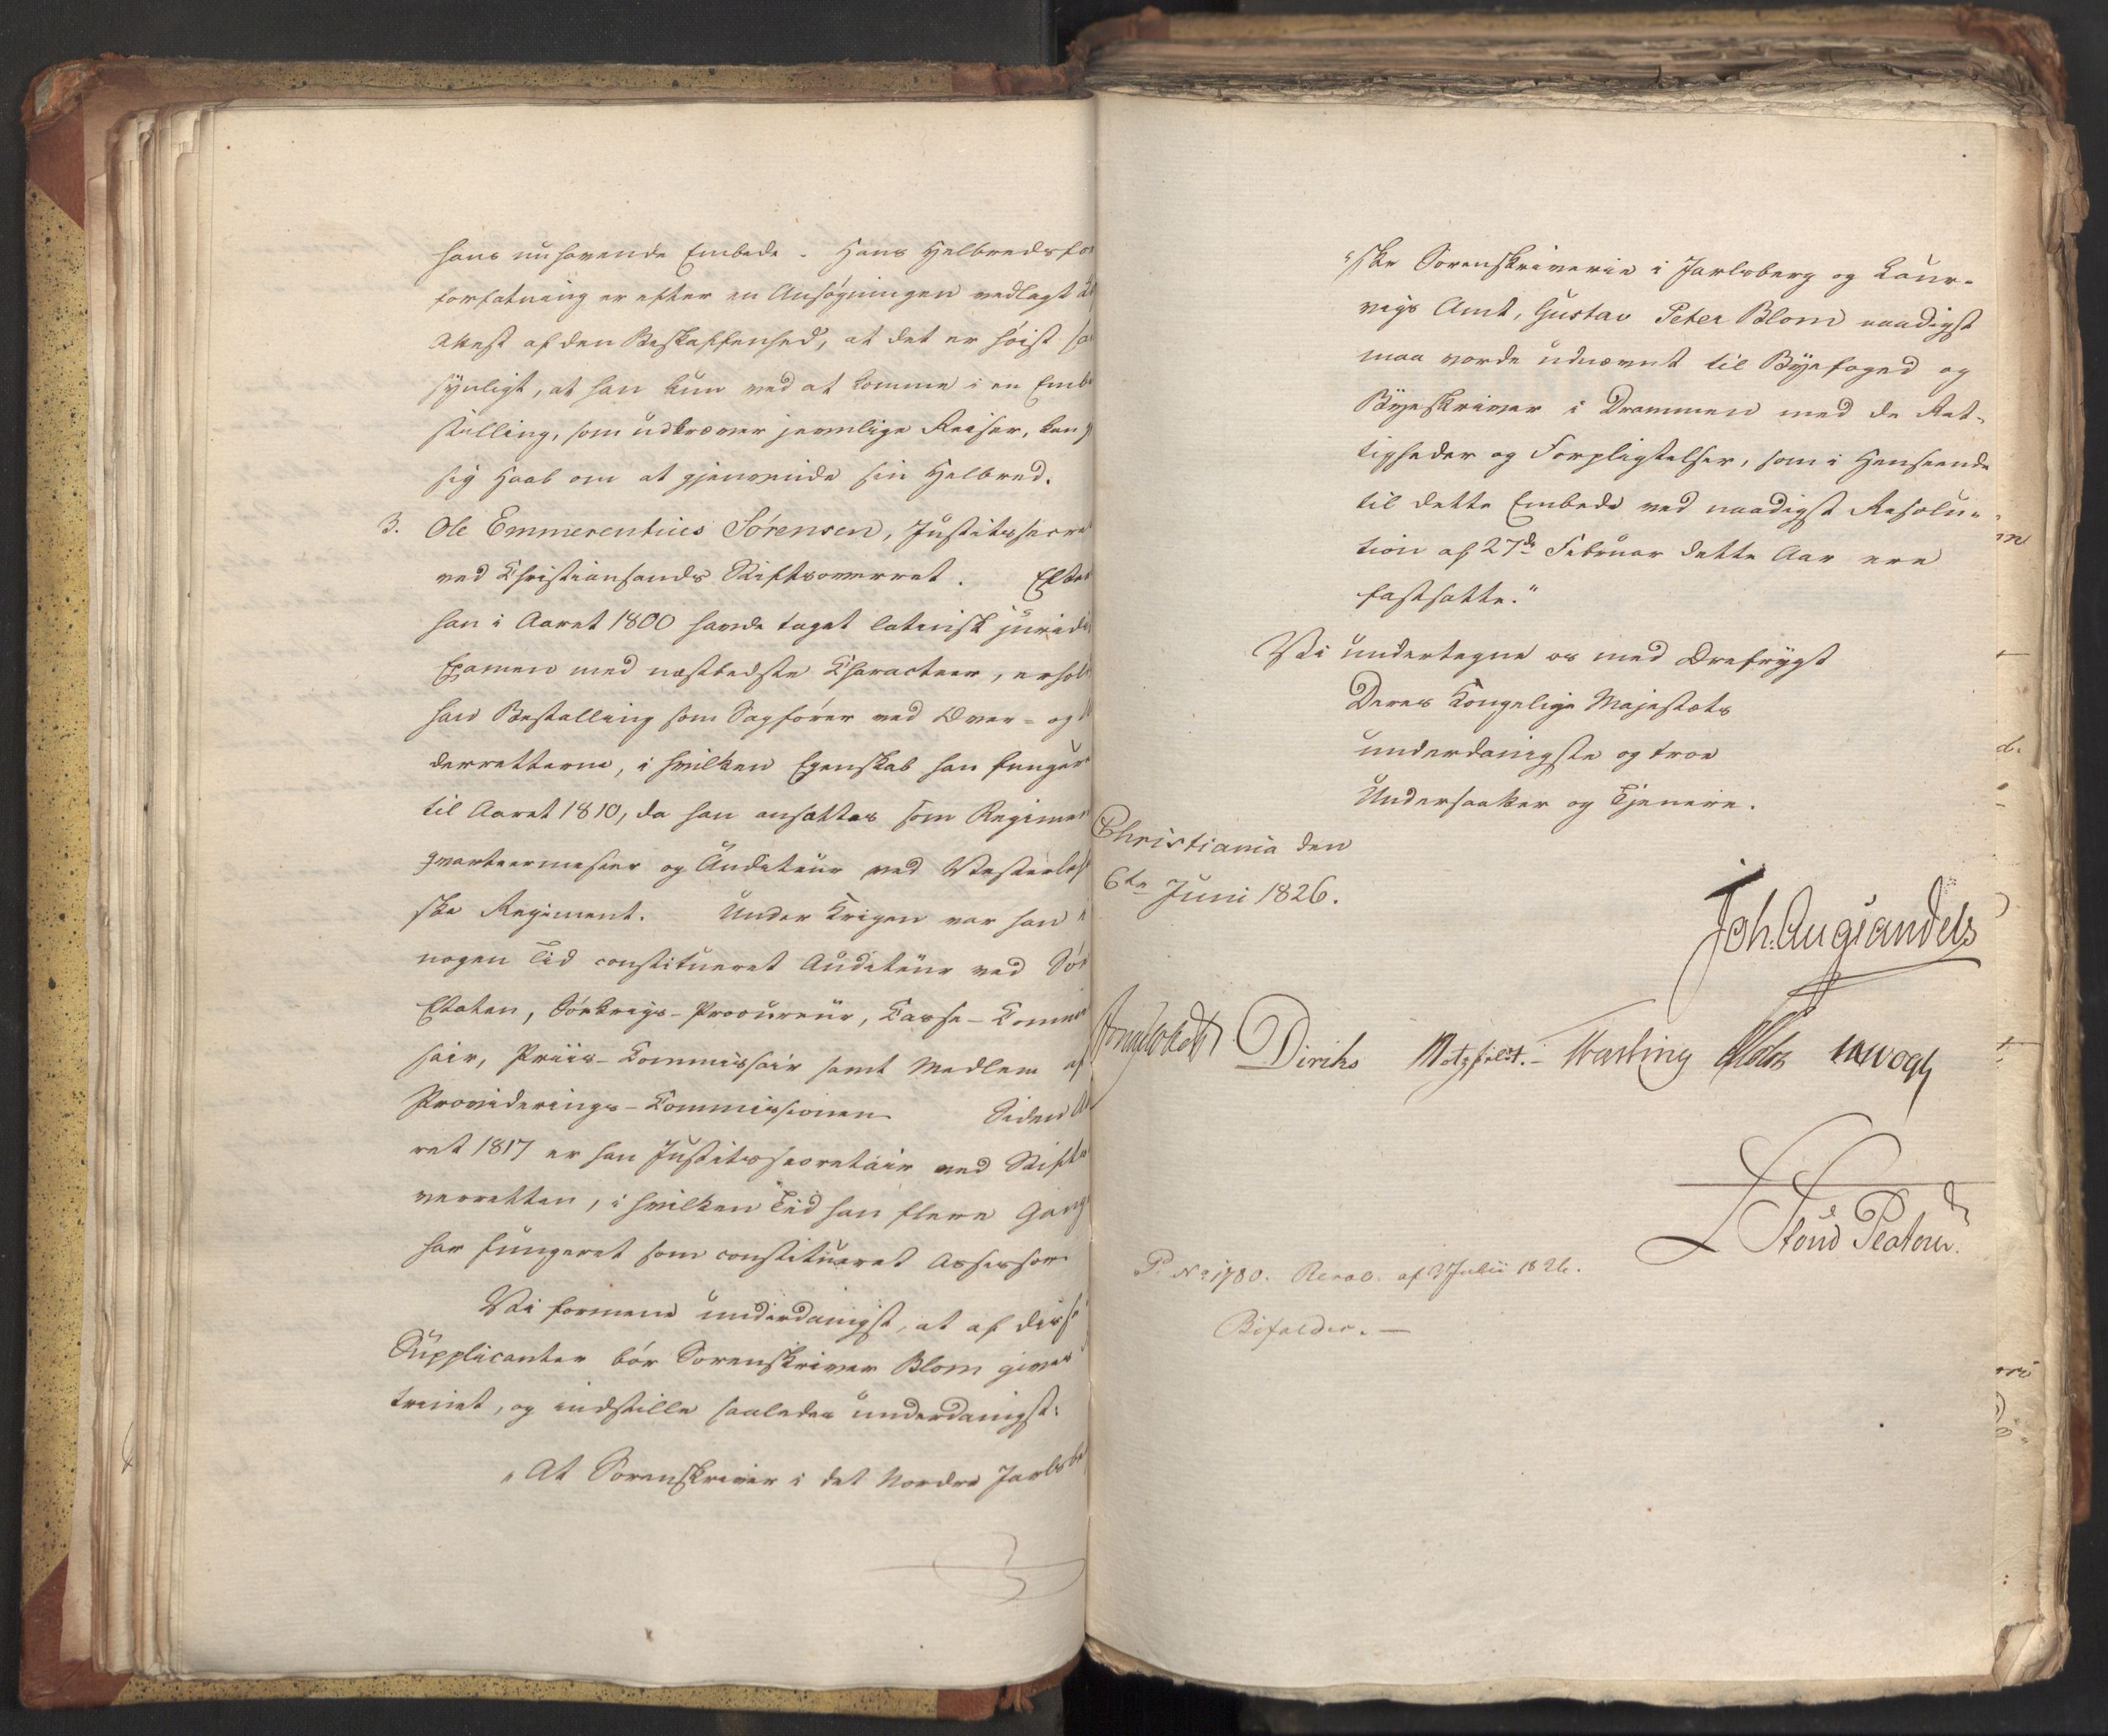 hans nuhavende Embede. Hans Helbredsfor
forfatning er efter en Ansøgningen vedlagt
Attest af den Beskaffenhed, at det er høist
synligt, at han kun ved at komme i en Embe
stilling, som udkræver jevnlige Reiser, kan
sig Haab om at gjenvinde sin Helbred.
3. Ole Emmerentius Sørensen, Justitssecre
ved Christiansands Stiftsoverret. Efter
han i Aaret 1800 havde taget latinsk juridi
Examen med næstbedste Characteer, erholt
han Bestalling som Sagfører ved Over- og
derretterne, i hvilken Egenskab han funger
til Aaret 1810, da han ansattes som Regimen
qvarteermester og Auditeur ved Vesterleh
ske Regiment. Under Krigen var han
nogen Tid constitueret Auditeur ved Sø
Etaten, Søkrigs-Procureur, Casse-Commi
sair, Priis-Commissair samt Medlem af
Provideerings-Commissionen. Siden Aa
ret 1817 er han Justitssecretair ved Stifts
overretten, i hvilken Tid han flere Gang
har fungeret som constitueret Assessor.
Vi formene underdanigst, at af disse
Supplicanter bør Sorenskriver Blom gives
trinet, og indstille saaledes underdanigst:
"At Sorenskriver i det Nordre Jarlsbe
"ske Sorenskriverie i Jarlsberg og Laur-
vigs Amt, Gustav Peter Blom naadigst
maa vorde udnævnt til Byefoged og
Byeskriver i Drammen med de Ret-
tigheder og Forpligtelser, som i Henseende
til dette Embede ved naadigst Resolu-
tion af 27de Februar dette Aar ere
fastsatte."
Vi undertegne os med Ærefrygt
Deres Kongelige Majestæts
underdanigste og troe
Undersaatter og Tjenere.
Christiania den
6te Juni 1826.
Joh. Aug. Sandels
Diriks Motzfeldt. Treschow JHVogt
L Stoud Platou.
P. No 1780. Resol. af 3 Julii 1826.
Bifaldes.—